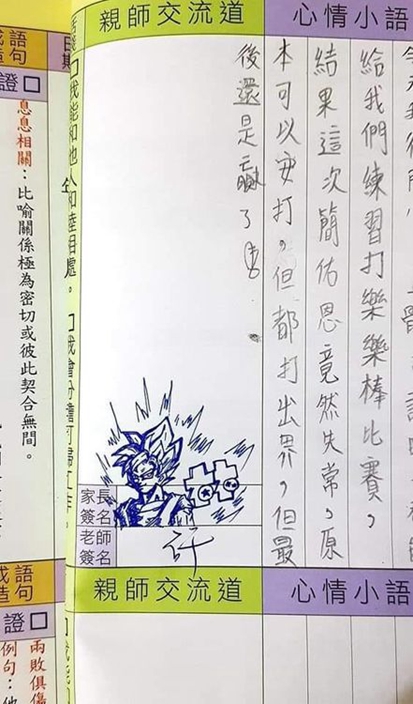 心情小語
給我們練習打樂樂棒比賽，
結果這次簡佑恩竟然失常，原
本可以安打，但都打出界，但最
後還是贏了
親師交流道
家長
簽名
老師
簽名
許
日
期
我能和他人和睦相處。
語
句
證
息息相關：比喻關係極為密切或彼此契合無間。
心情小語
親師交流道
成語
造句
證
兩敗俱傷
例句：他